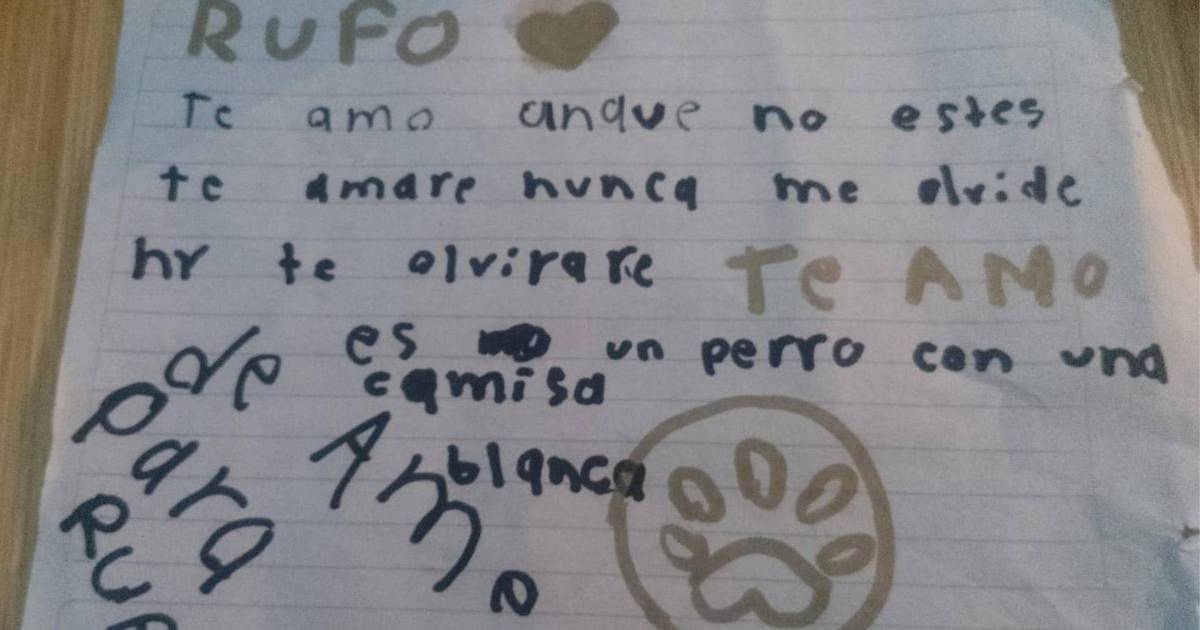 RUFO
Te amo anque no estes
te amare nunca me olvide
hr te olvirare TE AMO
es un perro con una
camisa
blanca
de
para